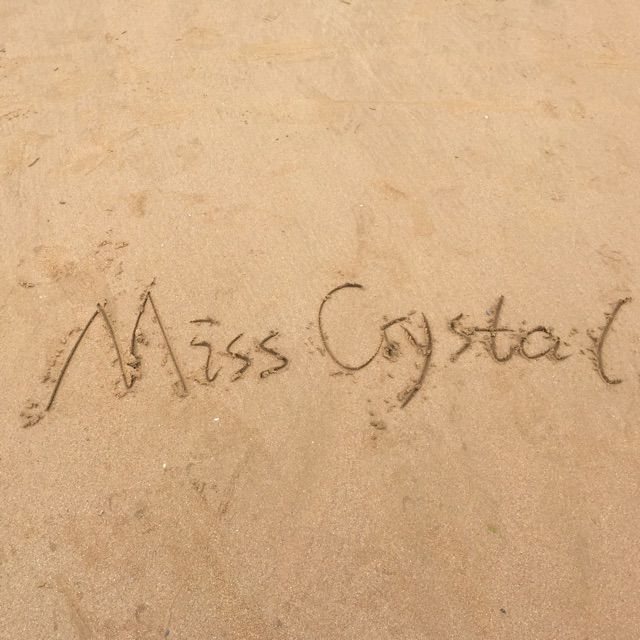 Miss Crystal